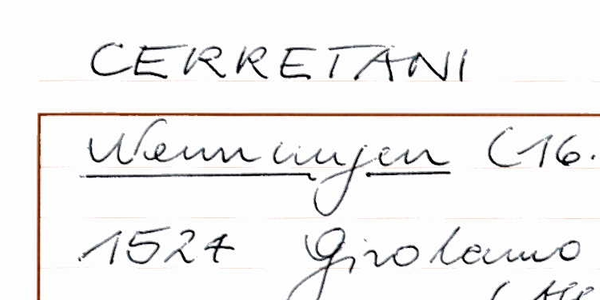 CERRETANI
Nennungen (16.
1527 Girolamo